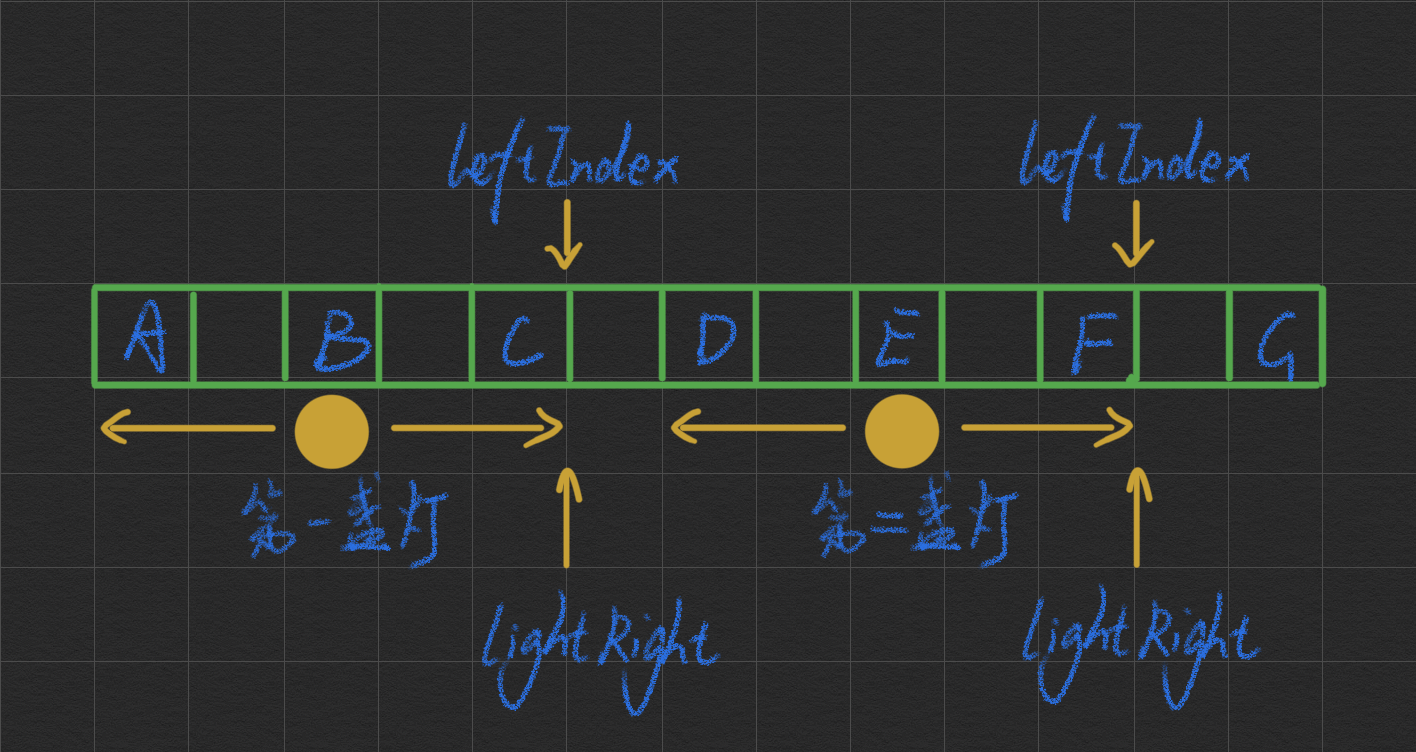 Left Index Left Index
A B C D E F G
第一盏灯 第二盏灯
Light Right Light Right